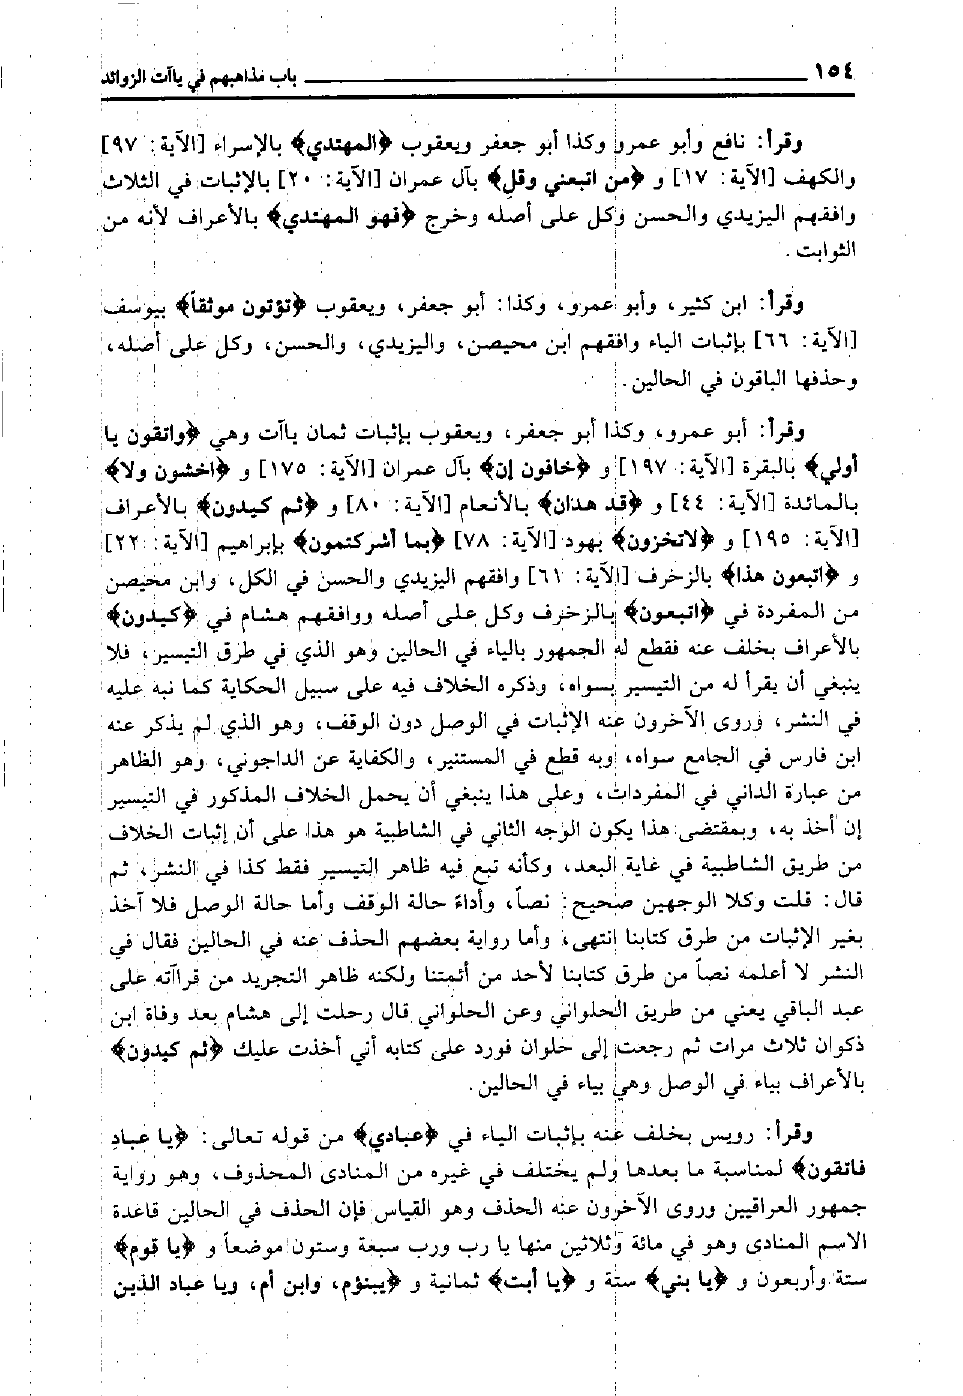 ١٥٤ باب مذاهبهم في ياآت الزوائد
وقرأ: نافع وأبو عمرو وكذا أبو جعفر ويعقوب ﴿المهتدي﴾ بالإسراء [الآية: ٩٧]
والكهف [الآية: ١٧] و ﴿من اتبعني وقل﴾ بآل عمران [الآية: ٢٠] بالإثبات في الثلاث
وافقهم اليزيدي والحسن وكل على أصله وخرج ﴿فهو المهتدي﴾ بالأعراف لأنه من
الثوابت.
وقرأ: ابن كثير، وأبو عمرو، وكذا: أبو جعفر، ويعقوب ﴿تؤتون موثقاً﴾ بيوسف
[الآية: ٦٦] بإثبات الياء وافقهم ابن محيصن، واليزيدي، والحسن، وكل على أصله،
وحذفها الباقون في الحالين.
وقرأ: أبو عمرو، وكذا أبو جعفر، ويعقوب بإثبات ثمان ياآت وهي ﴿واتقون يا
أولي﴾ بالبقرة [الآية: ١٩٧] و ﴿خافون إن﴾ بآل عمران [الآية: ١٧٥] و ﴿اخشون ولا﴾
بالمائدة [الآية: ٤٤] و ﴿قد هدان﴾ بالأنعام [الآية: ٨٠] و ﴿ثم كيدون﴾ بالأعراف
[الآية: ١٩٥] و ﴿لاتخزون﴾ بهود [الآية: ٧٨] ﴿بما أشركتمون﴾ بإبراهيم [الآية: ٢٢]
و ﴿اتبعون هذا﴾ بالزخرف [الآية: ٦١] وافقهم اليزيدي والحسن في الكل، وابن محيصن
من المفردة في ﴿اتبعون﴾ بالزخرف وكل على أصله ووافقهم هشام في ﴿كيدون﴾
بالأعراف بخلف عنه فقطع له الجمهور بالياء في الحالين وهو الذي في طرق التيسير، فلا
ينبغي أن يقرأ له من التيسير بسواه، وذكره الخلاف فيه على سبيل الحكاية كما نبه عليه
في النشر، وروى الآخرون عنه الإثبات في الوصل دون الوقف، وهو الذي لم يذكر عنه
ابن فارس في الجامع سواه، وبه قطع في المستنير، والكفاية عن الداجوني، وهو الظاهر
من عبارة الداني في المفردات، وعلى هذا ينبغي أن يحمل الخلاف المذكور في التيسير
إن أخذ به، وبمقتضى هذا يكون الوجه الثاني في الشاطبية هو هذا على أن إثبات الخلاف
من طريق الشاطبية في غاية البعد، وكأنه تبع فيه ظاهر التيسير فقط كذا في النشر، ثم
قال: قلت وكلا الوجهين صحيح: نصاً، وأداءً حالة الوقف وأما حالة الوصل فلا آخذ
بغير الإثبات من طرق كتابنا انتهى، وأما رواية بعضهم الحذف عنه في الحالين فقال في
النشر لا أعلمه نصاً من طرق كتابنا لأحد من أئمتنا ولكنه ظاهر التجريد من قراآته على
عبد الباقي يعني من طريق الحلواني وعن الحلواني قال رحلت إلى هشام بعد وفاة ابن
ذكوان ثلاث مرات ثم رجعت إلى حلوان فورد على كتابه أني أخذت عليك ﴿ثم كيدون﴾
بالأعراف بياء في الوصل وهي بياء في الحالين.
وقرأ: رويس بخلف عنه بإثبات الياء في ﴿عبادي﴾ من قوله تعالى: ﴿يا عبادِ
فاتقون﴾ لمناسبة ما بعدها ولم يختلف في غيره من المنادى المحذوف، وهو رواية
جمهور العراقيين وروى الآخرون عنه الحذف وهو القياس فإن الحذف في الحالين قاعدة
الاسم المنادى وهو في مائة وثلاثين منها يا رب ورب سبعة وستون موضعاً و ﴿يا قوم﴾
ستة وأربعون و ﴿يا بني﴾ ستة و ﴿يا أبت﴾ ثمانية و ﴿يبنؤم، وابن أم، ويا عباد الذين